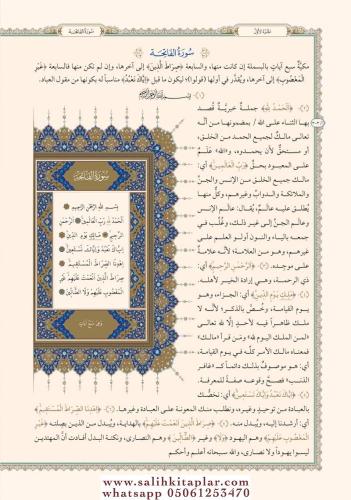 الجزء الأول
سورة الفاتحة
سُورَةُ الفَاتِحَة
مكيّة سبع آياتٍ بالبسملة إن كانت منها، والسابعة ﴿صِرَاطَ الَّذِينَ﴾ إلى آخرها، وإن لم تكن منها فالسابعة ﴿غَيْرِ
الْمَغْضُوبِ﴾ إلى آخرها، ويُقدَّر في أولها (قولوا)؛ ليكون ما قبل ﴿إِيَّاكَ نَعْبُدُ﴾ مناسباً له بكونها من مقول العباد.
بِسْمِ اللَّهِ الرَّحْمَٰنِ الرَّحِيمِ
﴿الْحَمْدُ لِلَّهِ﴾ جملةٌ خبريّةٌ قُصد
بها الثناء على الله بمضمونها من أنّه
تعالى مالكٌ لجميع الحمد من الخلق،
أو مستحقٌّ لأن يحمدوه، و«الله» عَلَمٌ
على المعبود بحقٍّ ﴿رَبِّ الْعَالَمِينَ﴾ أي:
مالك جميع الخلق من الإنس والجنّ
والملائكة والدوابّ وغيرهم، وكلٌّ منها
يُطلق عليه عالَمٌ، يُقال: عالم الإنس
وعالم الجنّ إلى غير ذلك، وغُلّب في
جمعه بالياء والنون أولو العلم على
غيرهم، وهو من العلامة؛ لأنّه علامةٌ
على موجده. ﴿الرَّحْمَٰنِ الرَّحِيمِ﴾ أي:
ذي الرحمة، وهي إرادة الخير لأهله.
﴿مَٰلِكِ يَوْمِ الدِّينِ﴾ أي: الجزاء، وهو
يوم القيامة، وخُصّ بالذكر؛ لأنّه لا
ملك ظاهراً فيه لأحدٍ إلّا لله تعالى
«لمن الملك اليوم لله» ومَن قرأ «مالك»
فمعناه مالك الأمر كلّه في يوم القيامة،
أي: هو موصوفٌ بذلك دائماً كـ«غافر
الذنب» فصحّ وقوعه صفةً للمعرفة.
﴿إِيَّاكَ نَعْبُدُ وَإِيَّاكَ نَسْتَعِينُ﴾ أي: نخصّك
بالعبادة من توحيدٍ وغيره، ونطلب منك المعونة على العبادة وغيرها. ﴿اهْدِنَا الصِّرَاطَ الْمُسْتَقِيمَ﴾
أي: أرشدنا إليه، ويُبدل منه. ﴿صِرَاطَ الَّذِينَ أَنْعَمْتَ عَلَيْهِمْ﴾ بالهداية، ويُبدل من الذين بصلته ﴿غَيْرِ
الْمَغْضُوبِ عَلَيْهِمْ﴾ وهم اليهود ﴿وَلَا﴾ وغير ﴿الضَّالِّينَ﴾ وهم النصارى، ونكتة البدل أفادت أنّ المهتدين
ليسوا يهوداً ولا نصارى، والله سبحانه أعلم وأحكم
سورة الفاتحة
بِسْمِ اللَّهِ الرَّحْمَٰنِ الرَّحِيمِ
الْحَمْدُ لِلَّهِ رَبِّ الْعَالَمِينَ الرَّحْمَٰنِ
الرَّحِيمِ مَٰلِكِ يَوْمِ الدِّينِ
إِيَّاكَ نَعْبُدُ وَإِيَّاكَ نَسْتَعِينُ
اهْدِنَا الصِّرَاطَ الْمُسْتَقِيمَ
صِرَاطَ الَّذِينَ أَنْعَمْتَ عَلَيْهِمْ غَيْرِ
الْمَغْضُوبِ عَلَيْهِمْ وَلَا الضَّالِّينَ
وهي سبع آيات
www.salihkitaplar.com
whatsapp 05061253470